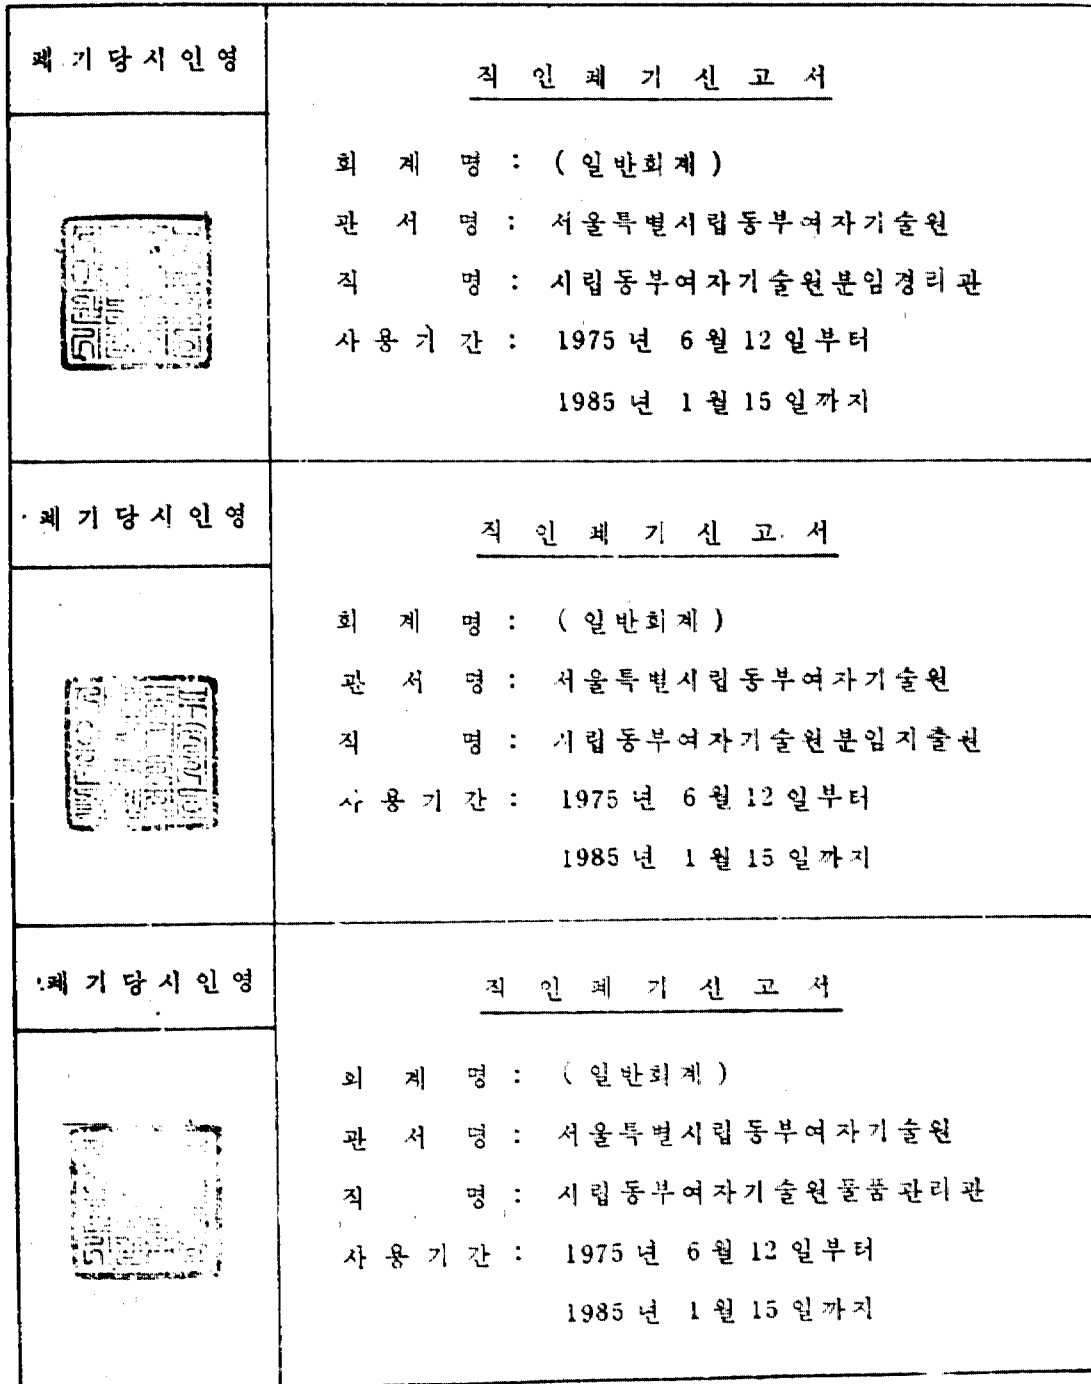 폐기당시인영
직인폐기신고서
회계명 : (일반회계)
관서명 : 서울특별시립동부여자기술원
직명 : 시립동부여자기술원분임경리관
사용기간 : 1975년 6월 12일부터
1985년 1월 15일까지
폐기당시인영
직인폐기신고서
회계명 : (일반회계)
관서명 : 서울특별시립동부여자기술원
직명 : 시립동부여자기술원분임지출원
사용기간 : 1975년 6월 12일부터
1985년 1월 15일까지
폐기당시인영
직인폐기신고서
회계명 : (일반회계)
관서명 : 서울특별시립동부여자기술원
직명 : 시립동부여자기술원물품관리관
사용기간 : 1975년 6월 12일부터
1985년 1월 15일까지